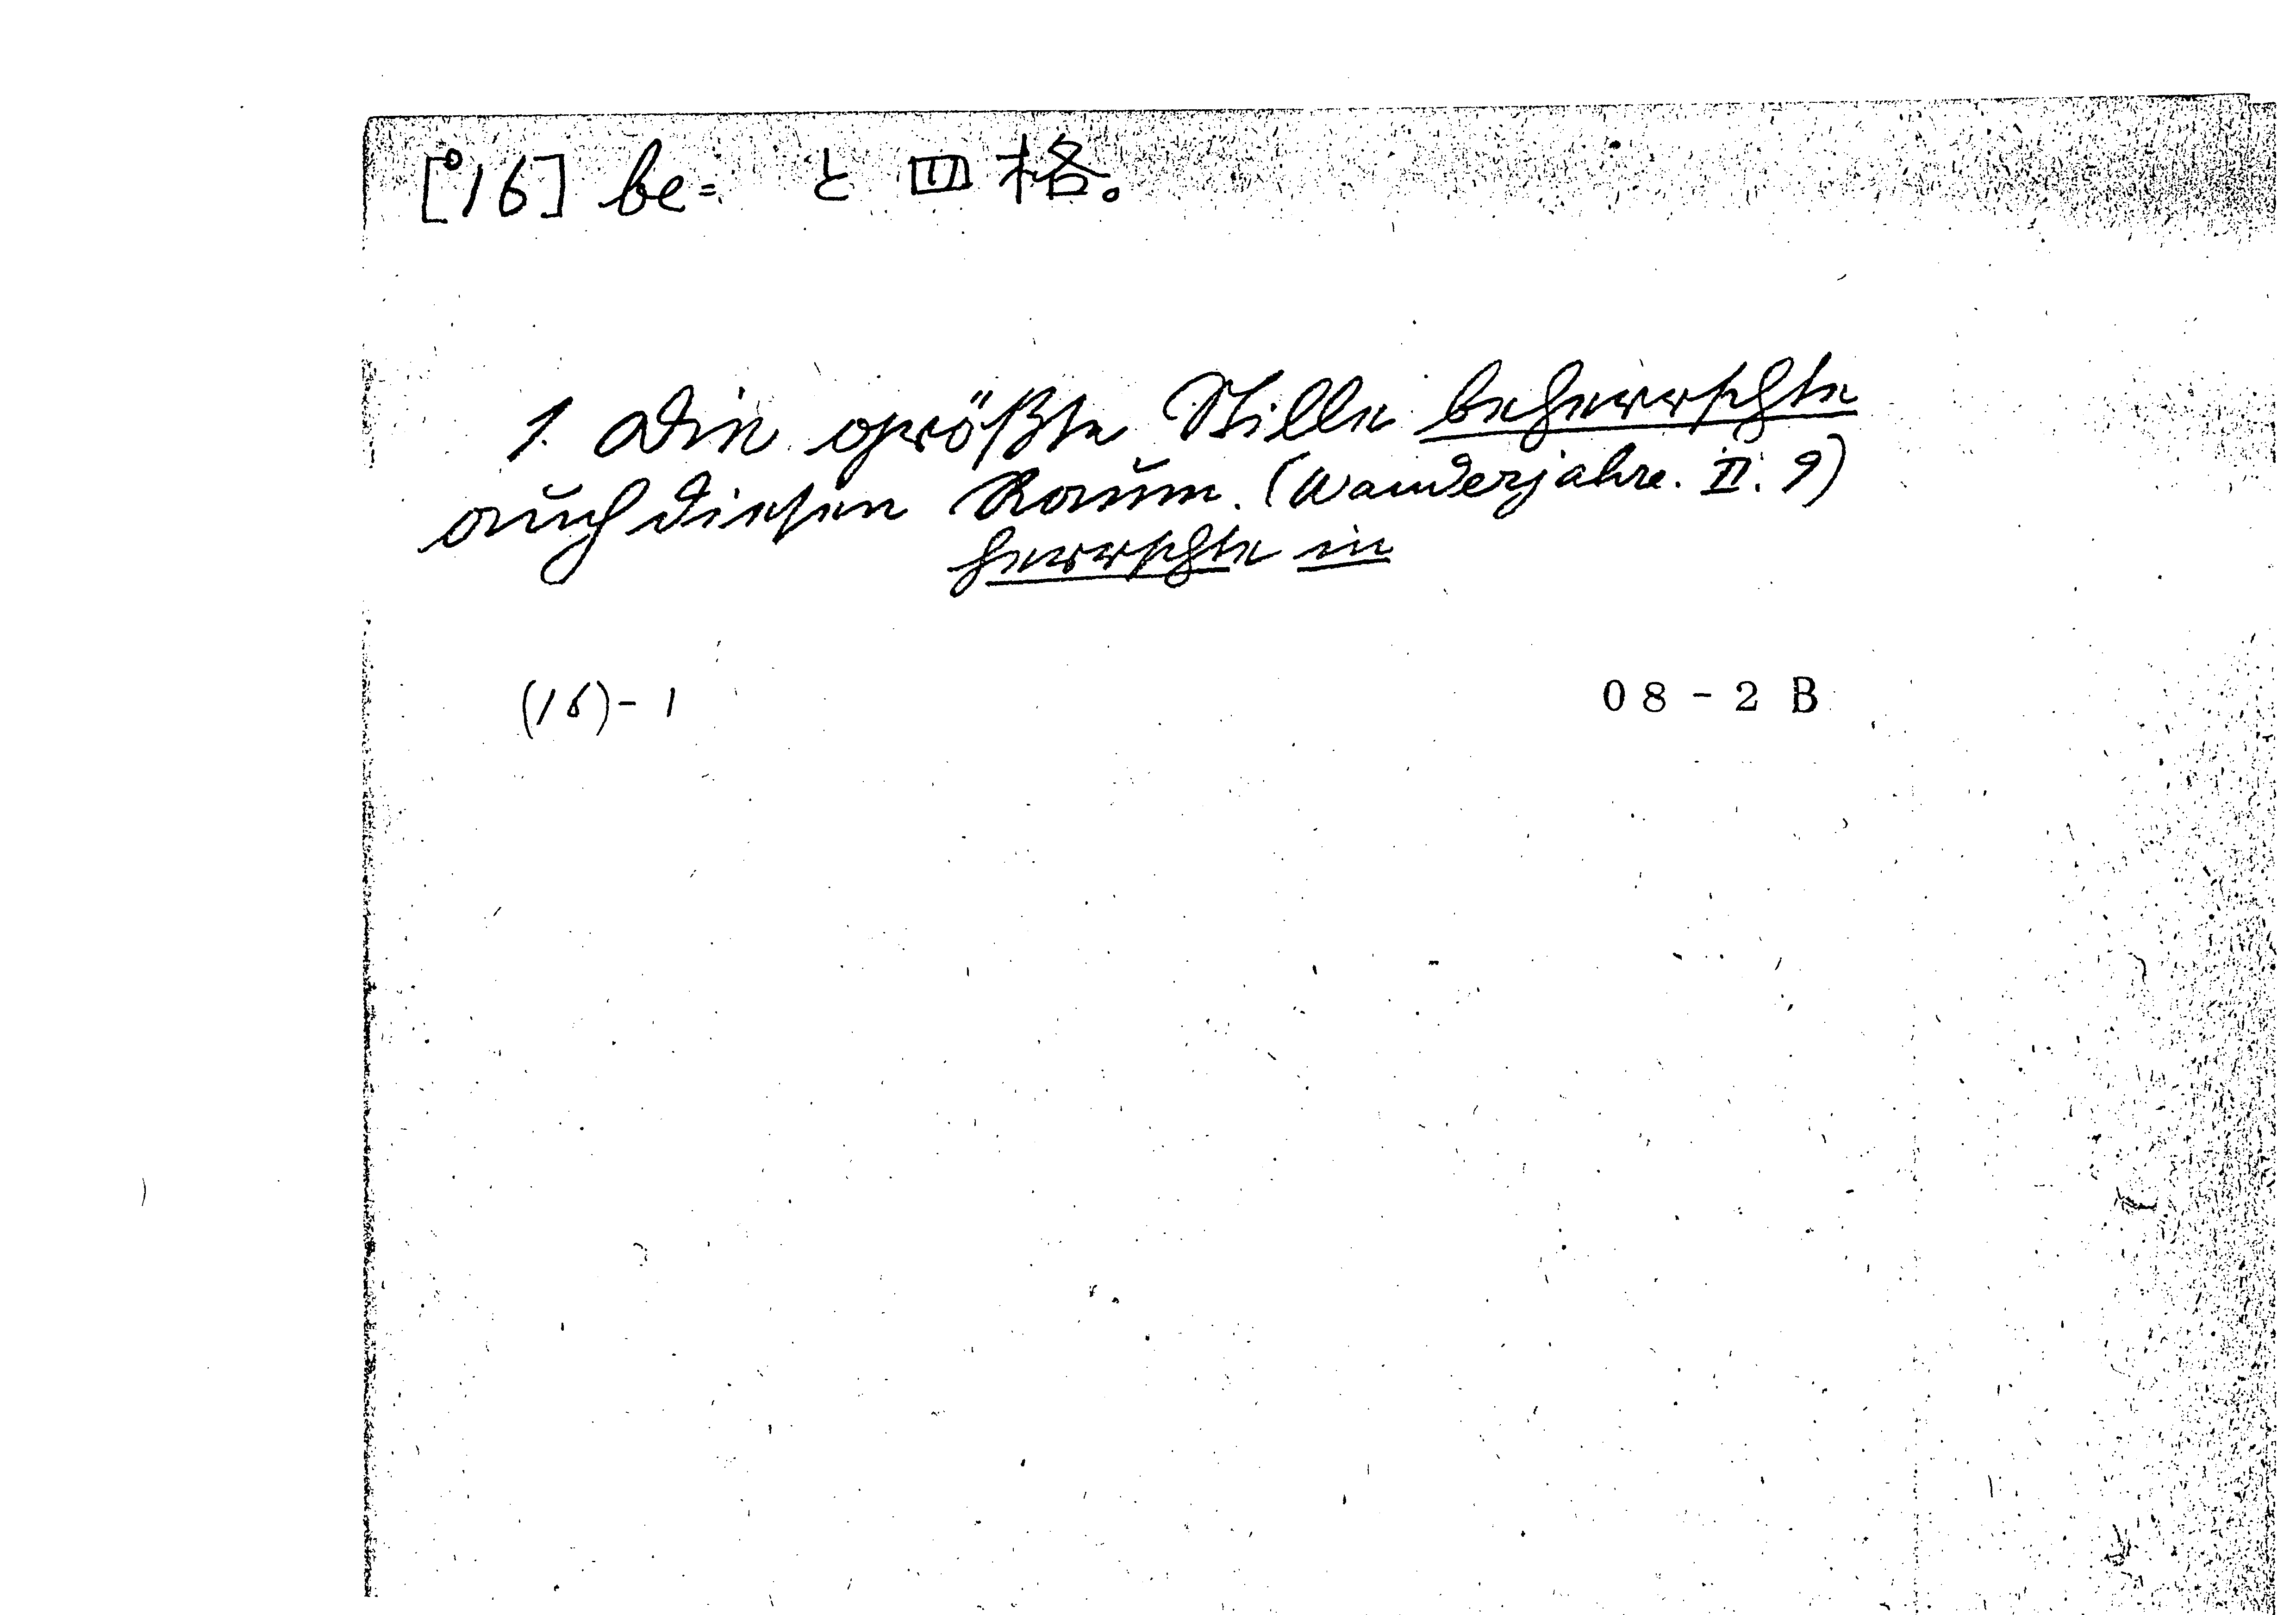 [°16] be= と四格。
1. Die größte Stille beherrschte
auch diesen Raum. (Wanderjahre. II. 9)
herrschte in
(16)-1
08-2 B